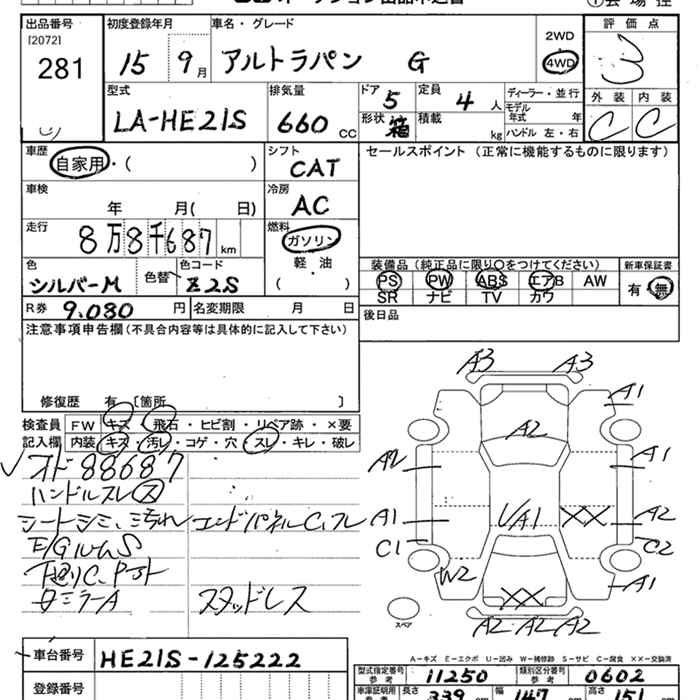 出品番号 初度登録年月 車名・グレード 2WD 評価点
[2072] 281 15 9月 アルトラパン G 4WD 3
型式 排気量 ドア 5 定員 4人 ディーラー・並行 外装 内装
LA-HE21S 660CC 形状 箱 積載 kg モデル年式 年 C C
ハンドル 左・右
車歴 自家用・( ) シフト CAT セールスポイント (正常に機能するものに限ります)
車検 年 月( 日) 冷房 AC
走行 8万8千687km 燃料 ガソリン
軽・油
( )
色 シルバーM 色替 色コード Z2S
装備品(純正品に限り○をつけてください) 新車保証書
PS PW ABS エアB AW 有・無
SR ナビ TV カワ
R券 9.080円 名変期限 月 日 後日品
注意事項申告欄(不具合内容等は具体的に記入して下さい)
修復歴 有 [箇所 ]
検査員 FW キズ・飛石・ヒビ割・リペア跡・×要
記入欄 内装 キズ・汚レ・コゲ・穴・スレ・キレ・破レ
オド88687
ハンドルスレ ス
シートシミ、
E/GルームS
スタッドレス
A3 A3
A1
A2
A2 A1
A1 V/A1 XX A2
C1 C2
W2 A1
XX
スペア
A2 A2 A2
A-キズ E-エクボ U-凹み W-補修跡 S-サビ C-腐食 ××-交換済
車台番号 HE21S-125222
型式指定番号 参考 11250 類別区分番号 参考 0602
登録番号
車庫証明用 参考 長さ 339cm 幅 147cm 高さ 151